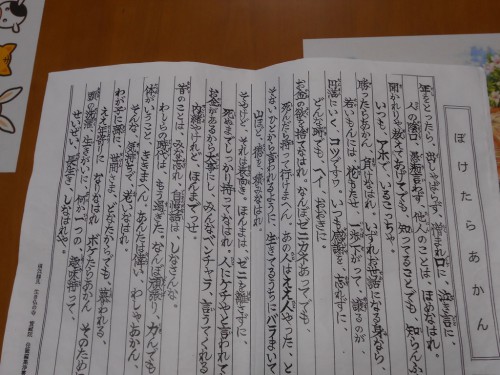 ぼけたらあかん
年をとったら 出しゃばらず、憎まれ口に 泣き言に、
人の陰口 愚痴言わず、他人のことは ほめなはれ。
聞かれりゃ教えてあげてでも 知ってることでも 知らんふり、
いつも アホで いるこっちゃ。
勝ったらあかん 負けなはれ。いずれお世話になる身なら、
若いもんには 花もたせ 一歩下がって、譲るのが
円満にいく コツですわ。いつも感謝を 忘れずに、
どんな時でも ヘイ おおきに
お金の欲を 捨てなはれ。なんぼゼニカネあってでも、
死んだら持って行けまへん。あの人は ええ人やった、と
そないひとから言われるように 生きてるうちに バラまいて
山ほど 徳を 積みなはれ。
そやけど、それは表向き。ほんまは ゼニを離さずに、
死ぬまでしっかり 持ってなはれ。人にケチやと言われても、
お金があるから大事にし みんなベンチャラ 言うてくれる
内緒やけれど ほんまでっせ。
昔のことは みな忘れ 自慢話は しなさんな、
わしらの時代は もう過ぎた。なんぼ頑張り 力んでも
体がいうこと、ききまへん。あんたは偉い わしゃあかん、
そんな、気持ちで 老いなはれ。
わが子に孫に 世間さま、どなたからでも、慕われる、
ええ年寄りに なりなはれ ボケたらあかん そのために
頭の洗濯、生きがいに、何か一つの 趣味持って、
せいぜい、長生き しなはれや。